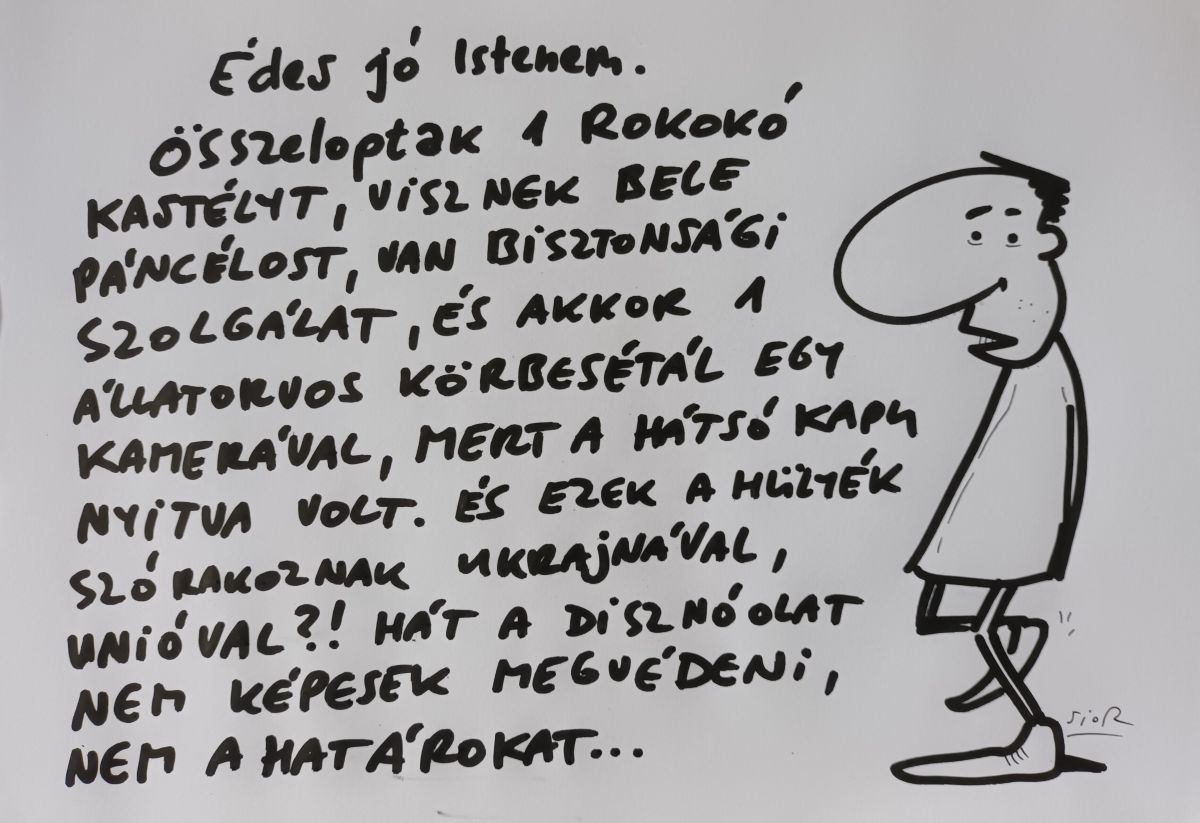 Édes jó Istenem.
Összeloptak 1 ROKOKÓ
KASTÉLYT, VISZNEK BELE
PÁNCÉLOST, VAN BISZTONSÁGI
SZOLGÁLAT, ÉS AKKOR 1
ÁLLATORVOS KÖRBESÉTÁL EGY
KAMERÁVAL, MERT A HÁTSÓ KAPU
NYITVA VOLT. ÉS EZEK A HÜLYÉK
SZÓRAKOZNAK UKRAJNÁVAL,
UNIÓVAL?! HÁT A DISZNÓOLAT
NEM KÉPESEK MEGVÉDENI,
NEM A HATÁROKAT...
SIOR